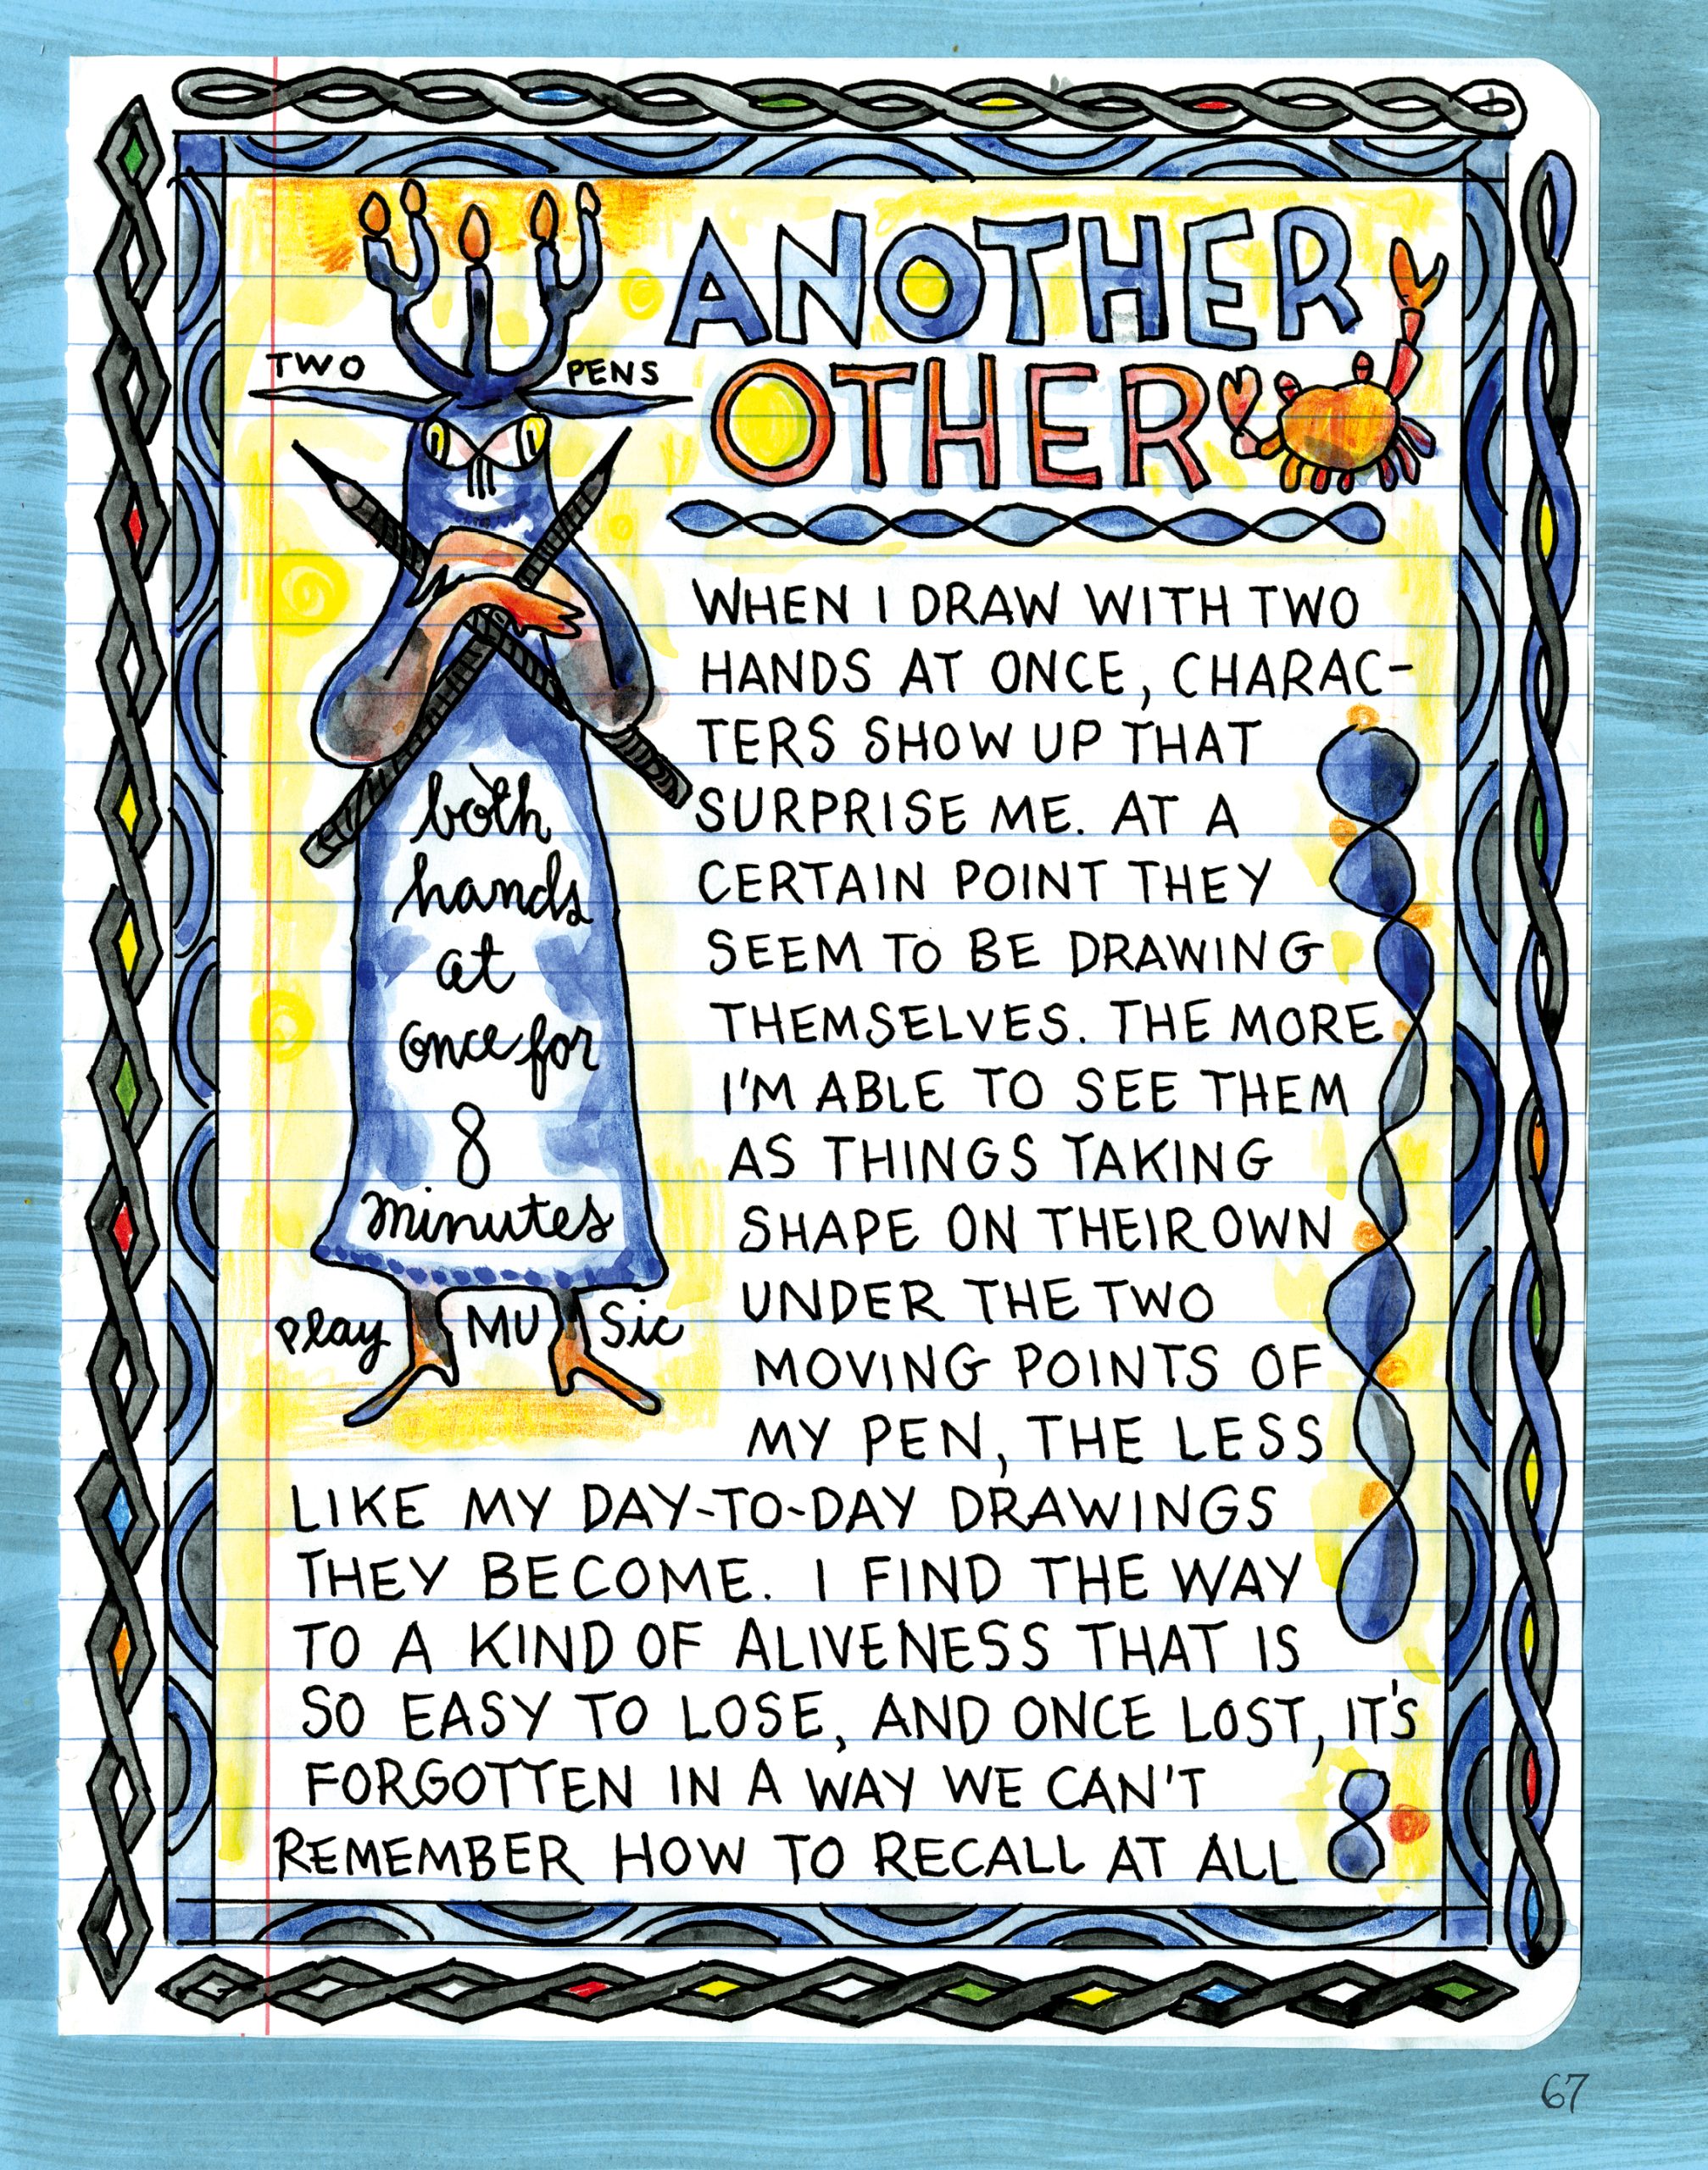 ANOTHER
OTHER
TWO PENS
both
hands
at
once for
8
minutes
play MUSic
WHEN I DRAW WITH TWO
HANDS AT ONCE, CHARAC-
TERS SHOW UP THAT
SURPRISE ME. AT A
CERTAIN POINT THEY
SEEM TO BE DRAWING
THEMSELVES. THE MORE
I'M ABLE TO SEE THEM
AS THINGS TAKING
SHAPE ON THEIR OWN
UNDER THE TWO
MOVING POINTS OF
MY PEN, THE LESS
LIKE MY DAY-TO-DAY DRAWINGS
THEY BECOME. I FIND THE WAY
TO A KIND OF ALIVENESS THAT IS
SO EASY TO LOSE, AND ONCE LOST, IT'S
FORGOTTEN IN A WAY WE CAN'T
REMEMBER HOW TO RECALL AT ALL
67